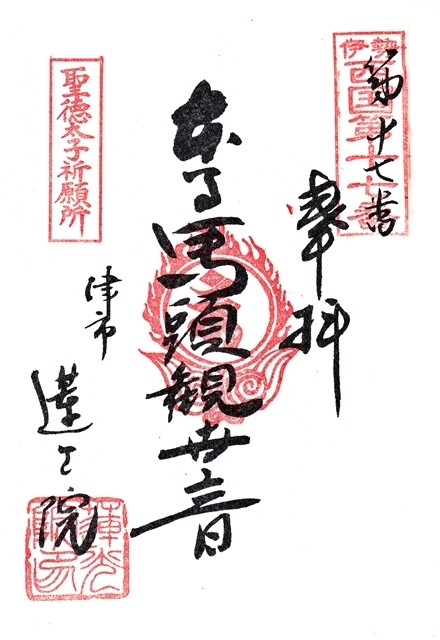 伊勢
西国第十七番
第十七番
奉拝
本尊馬頭観世音
聖徳太子祈願所
津市
蓮光院
蓮光
院印